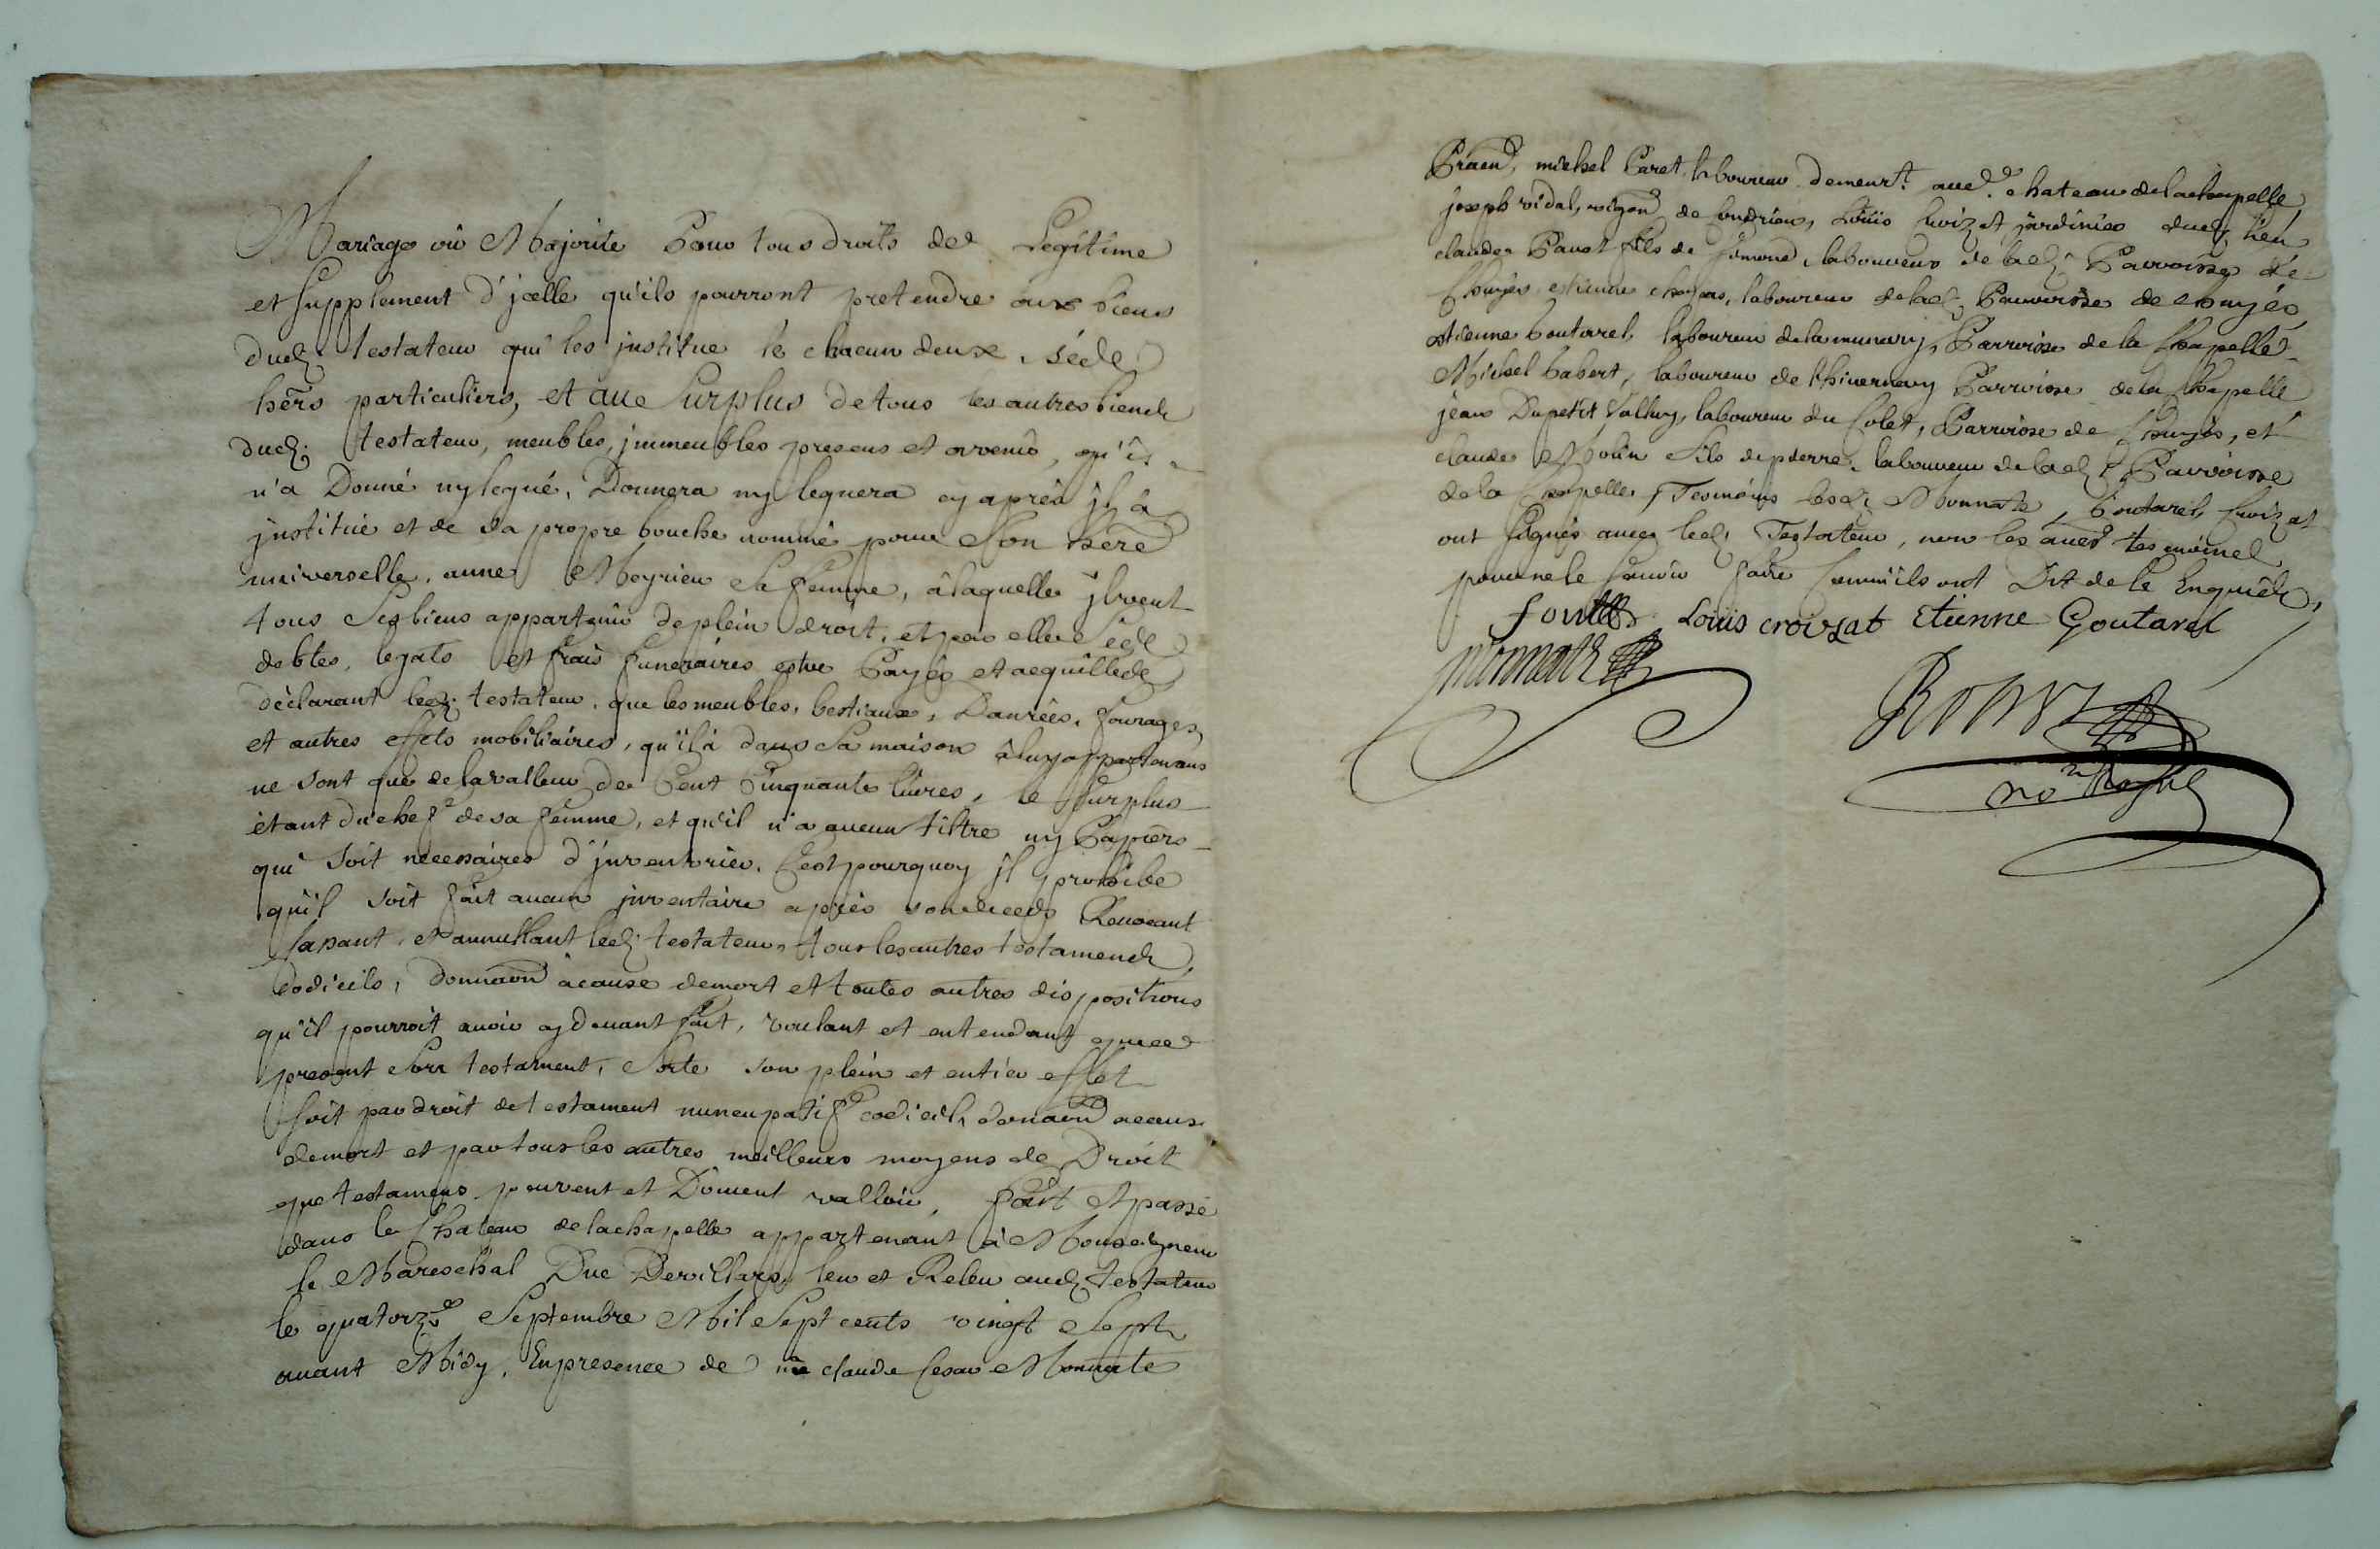 Mariage où Majorite Pour tous droits de Legitime
et Supplement d'jcelle qu'ils pourront pretendre aux biens
dud. testateur qui les jnstitue le chacun deux
hērs particuliers, et au Surplus de tous les autres biens
dud. testateur, meubles, jmmeubles presens et avenir, qu'il
n'a Donné ny legué, Donnera ny leguera cy après jl à
jnstitué et de sa propre bouche nommé pour Son here
universelle, anne Meyrieu Sa femme, à laquelle jl veut
tous Ses biens appartenir de plein droit, et par elle
debtes, legats et frais funeraires estre Payés et acquittes
dèclarant led. testateur, que les meubles, bestiaux, Danrées, fourages
et autres effets mobiliaires, qu'il à dans Sa maison à luy appartenans
ne sont que de la valleur de Cent Cinquante livres, le Surplus
ètant du chef de sa femme, et qu'il n'a aucun tiltre ny Papiers
qui soit necessaires d'jnventorier. C'est pourquoy jl prohibe
qu'il soit fait aucun jnventaire après son deceds Revocant
Cassant, et annullant led. testateur, tous les autres testamens
Codicils, donnaōn à cause de mort et toutes autres dispositions
qu'il pourroit avoir cy devant fait, voulant et entendant que ce
present Son testament, Sorte son plein et entier effet
Soit par droit de testament nuncupatif codicil, donnaōn a cause
de mort et par tous les autres meilleurs moyens de Droit
que testamens peuvent et Doivent valloir, fait et passé
dans le Chateau de la chapelle appartenant à Monseigneur
le Mareschal Duc De villars, leu et Releu aud. testateur
le quatorze Septembre Mil Sept cents vingt Sept
avant Midy, En presence de me claude Cesar Monnate
Praen, michel Paret laboureur demeurt. aud. chateau de la chapelle
joseph vidal, vigon de Condrieu, Loüis Croizat jardinier dud. lieu
claude Pavot fils de Simond, laboureur de lad. Parroisse de
Chuyès estienne laboureur de lad. Parroisse de chuyés
estienne boutarel laboureur de la Parroisse de la Chapelle
Michel babert, laboureur de Parroisse de la Chapelle
jean Dupetit Vallury, laboureur du Colet, Parroisse de Chuyés, et
claude Molin fils de pierre, laboureur de lad. Parroisse
de la Chapelle, Tesmoins lesd. Monnate, boutarel, Croizat
ont Signés avec led. Testateur, non les autres tesmoins
pour ne le Savoir faire Comm'ils ont Dit de le Enquis
Louis croizat Etienne Goutarel
monnate